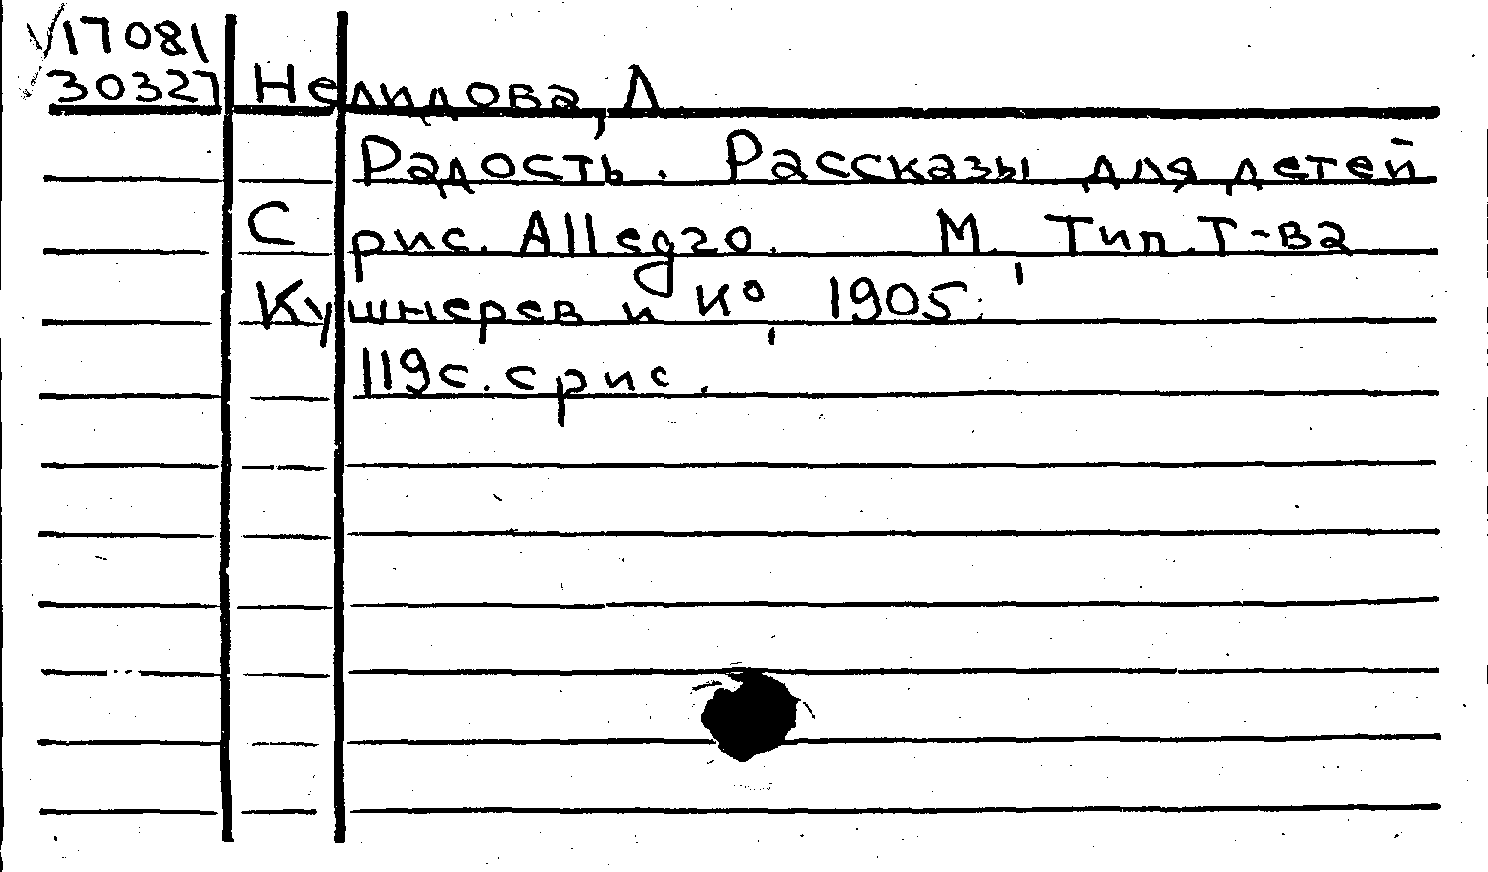 V17081
30327 Нелидова, Л.
Радость. Рассказы для детей
С рис. Allegro. М., Тип. Т-ва
Кушнерев и К°, 1905.
119с. с рис.